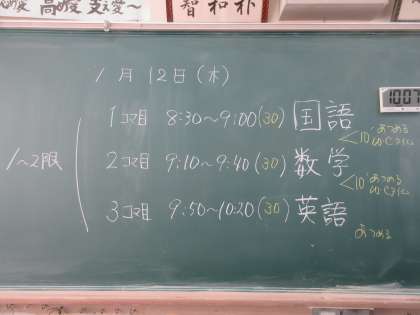 高皎 支え愛〜
智和朴
1月12日(木)
1007
1〜2限
1コマ目 8:30〜9:00(30) 国語
10' あつめる
2コマ目 9:10〜9:40(30) 数学
10' あつめる
3コマ目 9:50〜10:20(30) 英語
あつめる